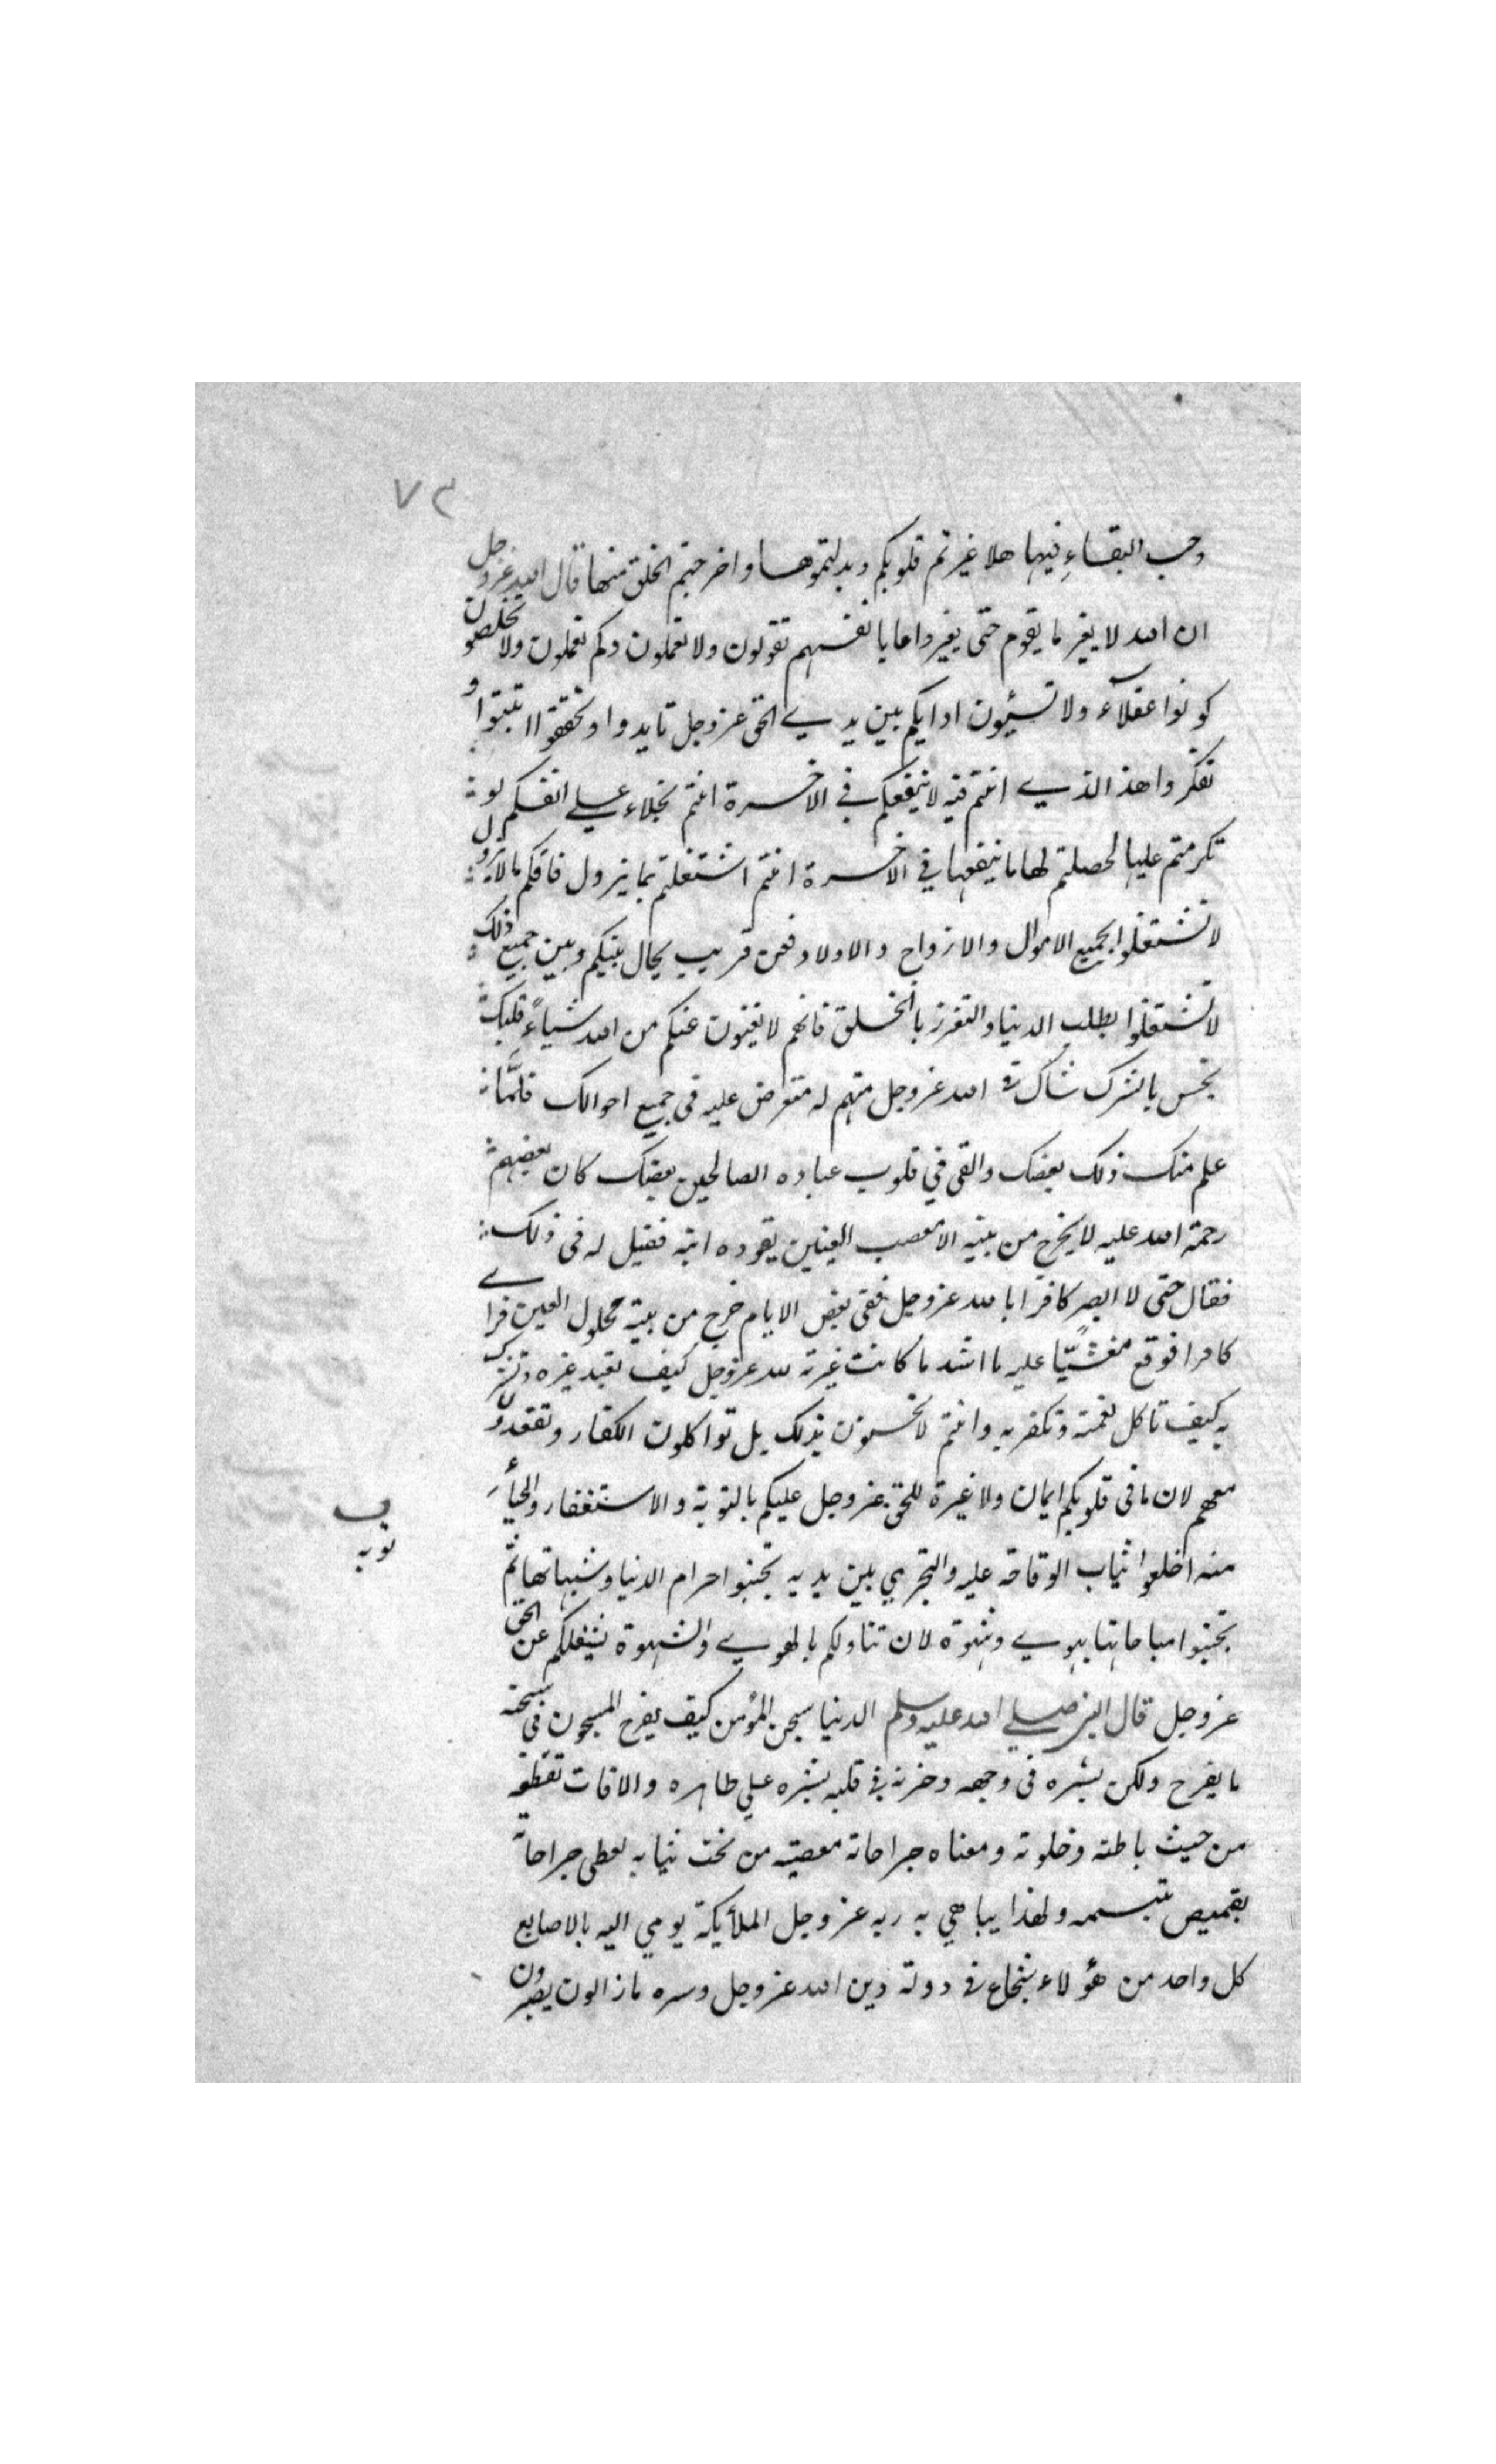 ٧٢
وحب البقاء فيها هلا غيرتم قلوبكم وبدلتموها واخرجتم الخلق منها قال الله عزوجل
ان الله لا يغير ما بقوم حتى يغيروا ما بانفسهم تقولون ولا تعملون وكم تعملون ولا تخلصون
كونوا عقلآء ولا تسيئون ادابكم بين يدي الحق عزوجل تايدوا وتحققوا اثبتوا و
تفكروا هذا الذي انتم فيه لا ينفعكم في الاخرة انتم بخلاء علي انفسكم لو
تكرمتم عليها لحصلتم لها ما ينفعها في الاخرة انتم اشتغلتم بما يزول فاتكم ما لا يزول
لا تشتغلوا بجميع الاموال والازواج والاولاد فعن قريب يحال بينكم وبين جميع ذلك
لا تشتغلوا بطلب الدنيا والتعزز بالخلق فانهم لا يغنون عنكم من الله شياءً قلبك
نجس بالشرك شاك في الله عزوجل متهم له متعرض عليه في جميع احوالك فلمّا
علم منك ذلك بغضك والقى في قلوب عباده الصالحين بغضك كان بعضهم
رحمة الله عليه لا يخرج من بيته الا معصب العينين يقوده ابنه فقيل له في ذلك
فقال حتى لا ابصر كافرا بالله عزوجل ففي بعض الايام خرج من بيته محلول العين فراي
كافرا فوقع مغشيًّا عليه ما اشد ما كانت غيرته لله عزوجل كيف تعبد غيره وتشرك
به كيف تاكل نعمته وتكفر به وانتم لا تحسون بذلك بل تواكلون الكفار وتقعدون
معهم لان ما في قلوبكم ايمان ولا غيرة للحق عزوجل عليكم بالتوبة والاستغفار والحيأ
منه اخلعوا ثياب الوقاحة عليه والتجري بين يديه تجنبوا حرام الدنيا وشبهاتها ثم
تجنبوا مباحاتها بهوي وشهوة لان تناولكم بالهوي والشهوة يشغلكم عن الحق
عزوجل قال النبي صلي الله عليه وسلم الدنيا سجن المؤمن كيف يفرح المسجون في سجنه
ما يفرح ولكن بشره في وجهه وحزنه في قلبه بشره علي ظاهره والافات تقطعه
من حيث باطنه وخلوته ومعناه جراحاته معصبة من تحت ثيابه يغطي جراحاته
بقميص تبسمه ولهذا يباهي به ربه عزوجل الملأيكة يومي اليه بالاصابع
كل واحد من هؤلاء شجاع في دولة دين الله عزوجل وسره ما زالون يصبرون
توبه